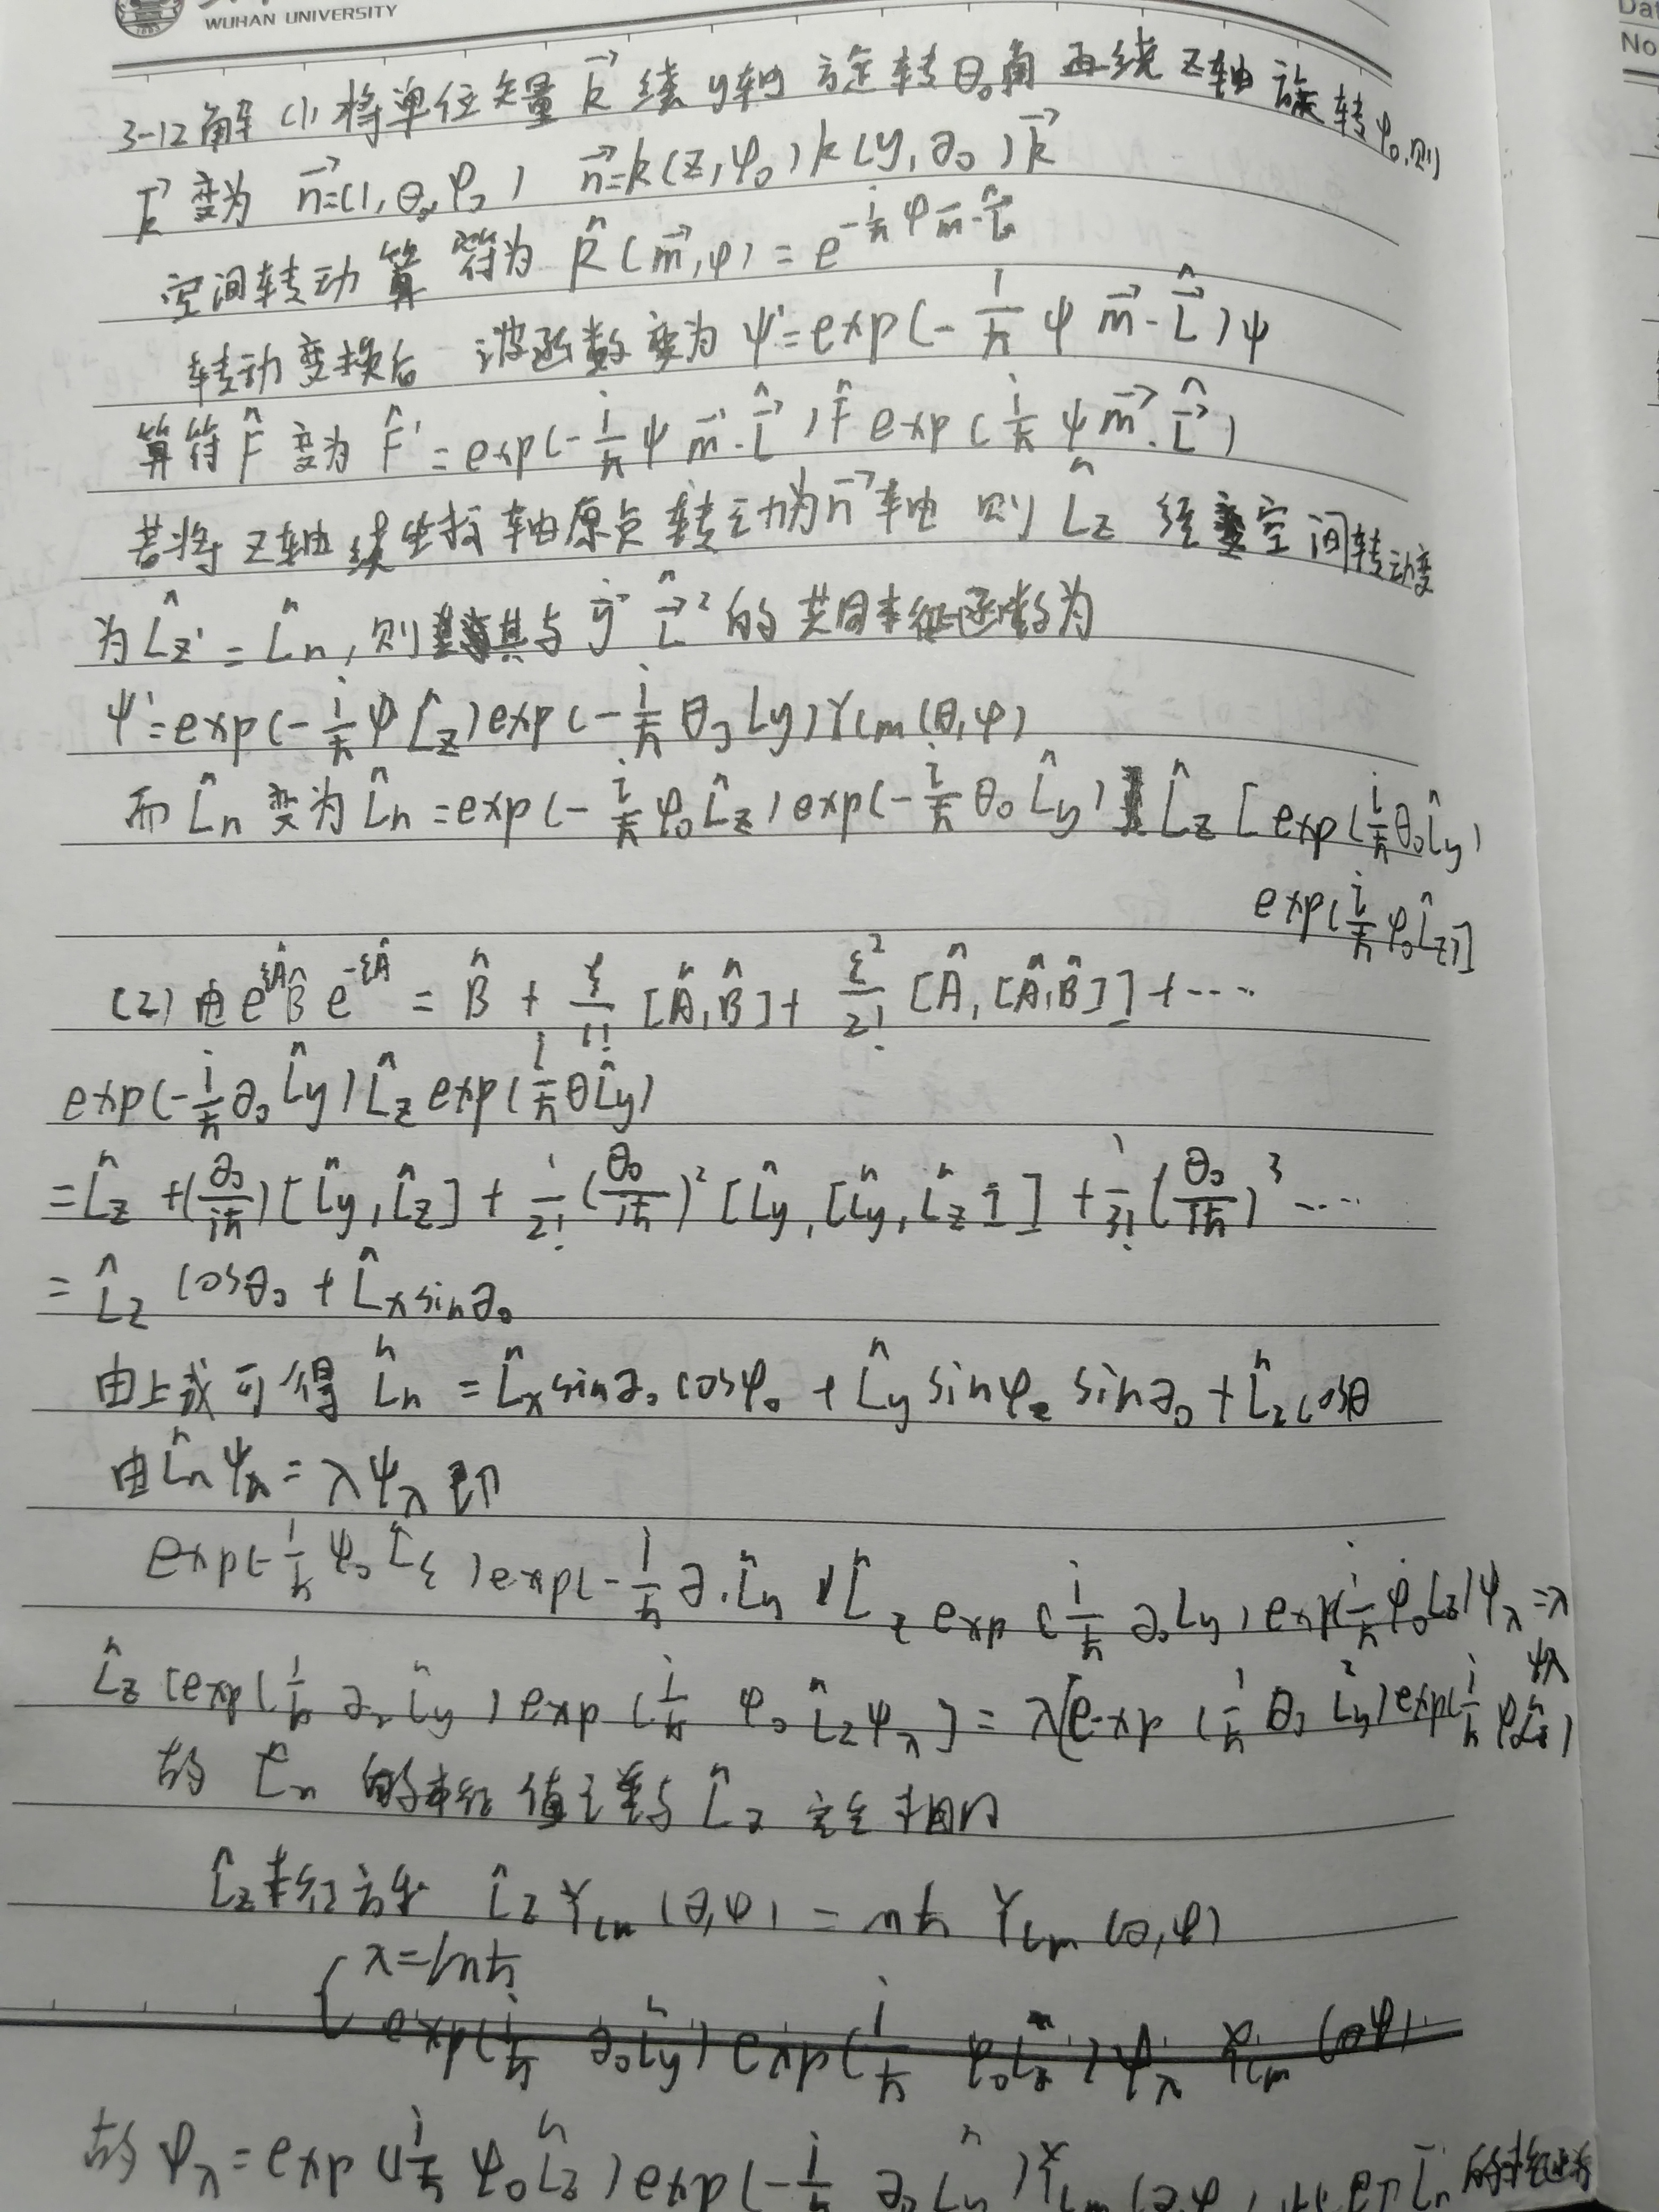 WUHAN UNIVERSITY
Da
No
3-12解 (1) 将单位矢量 $\vec{k}$ 绕y轴旋转θ₀角再绕z轴旋转φ₀,则
$\vec{k}$ 变为 $\vec{n}$=(1,θ₀,φ₀) $\vec{n}$=k(z,φ₀)k(y,θ₀)$\vec{k}$
空间转动算符为 $\hat{R}(\vec{m},φ)=e^{-\frac{i}{\hbar}φ\vec{m}·\hat{\vec{L}}}$
转动变换后 波函数变为 $ψ'=exp(-\frac{i}{\hbar}ψ\vec{m}·\hat{\vec{L}})ψ$
算符 $\hat{F}$ 变为 $\hat{F}'=exp(-\frac{i}{\hbar}ψ\vec{m}·\hat{\vec{L}})\hat{F}exp(\frac{i}{\hbar}ψ\vec{m}·\hat{\vec{L}})$
若将z轴绕坐标轴原点转动为$\vec{n}$轴 则 $\hat{L}_z$ 经空间转动变
为 $\hat{L}_{z'}=\hat{L}_n$,则其与 $\hat{\vec{L}}^2$ 的共同本征函数为
$ψ'=exp(-\frac{i}{\hbar}φ\hat{L}_z)exp(-\frac{i}{\hbar}θ_0L_y)Y_{lm}(θ,φ)$
而 $\hat{L}_n$ 变为 $\hat{L}_n=exp(-\frac{i}{\hbar}φ_0\hat{L}_z)exp(-\frac{i}{\hbar}θ_0\hat{L}_y)\hat{L}_z[exp(\frac{i}{\hbar}θ_0\hat{L}_y)$
$exp(\frac{i}{\hbar}φ_0\hat{L}_z)]$
(2) 由 $e^{ξ\hat{A}}\hat{B}e^{-ξ\hat{A}}=\hat{B}+\frac{ξ}{1!}[\hat{A},\hat{B}]+\frac{ξ^2}{2!}[\hat{A},[\hat{A},\hat{B}]]+····$
$exp(-\frac{i}{\hbar}θ_0\hat{L}_y)\hat{L}_zexp(\frac{i}{\hbar}θ\hat{L}_y)$
$=\hat{L}_z+(\frac{θ_0}{i\hbar})[\hat{L}_y,\hat{L}_z]+\frac{1}{2!}(\frac{θ_0}{i\hbar})^2[\hat{L}_y,[\hat{L}_y,\hat{L}_z]]+\frac{1}{3!}(\frac{θ_0}{i\hbar})^3····$
$=\hat{L}_zcosθ_0+\hat{L}_xsinθ_0$
由上式可得 $\hat{L}_n=\hat{L}_xsinθ_0cosφ_0+\hat{L}_ysinφ_0sinθ_0+\hat{L}_zcosθ$
由 $\hat{L}_nψ_λ=λψ_λ$ 即
$exp(-\frac{i}{\hbar}φ_0\hat{L}_z)exp(-\frac{i}{\hbar}θ_0\hat{L}_y)\hat{L}_zexp(\frac{i}{\hbar}θ_0L_y)exp(\frac{i}{\hbar}φ_0L_z)ψ_λ=λ$
$ψ_λ$
$\hat{L}_z[exp(\frac{i}{\hbar}θ_0\hat{L}_y)exp(\frac{i}{\hbar}φ_0\hat{L}_zψ_λ]=λ[exp(\frac{i}{\hbar}θ_0\hat{L}_y)exp(\frac{i}{\hbar}φ_0\hat{L}_z)$
故 $\hat{L}_n$ 的本征值与 $\hat{L}_z$ 完全相同
$\hat{L}_z$本征方程 $\hat{L}_zY_{lm}(θ,φ)=m\hbar Y_{lm}(θ,φ)$
$λ=m\hbar$
$exp(\frac{i}{\hbar}θ_0\hat{L}_y)exp(\frac{i}{\hbar}φ_0\hat{L}_z)ψ_λ Y_{lm}(θ,φ)$
故 $ψ_λ=exp(\frac{i}{\hbar}φ_0\hat{L}_z)exp(-\frac{i}{\hbar}θ_0\hat{L}_y)Y_{lm}(θ,φ$ 此即 $\hat{L}_n$ 的本征